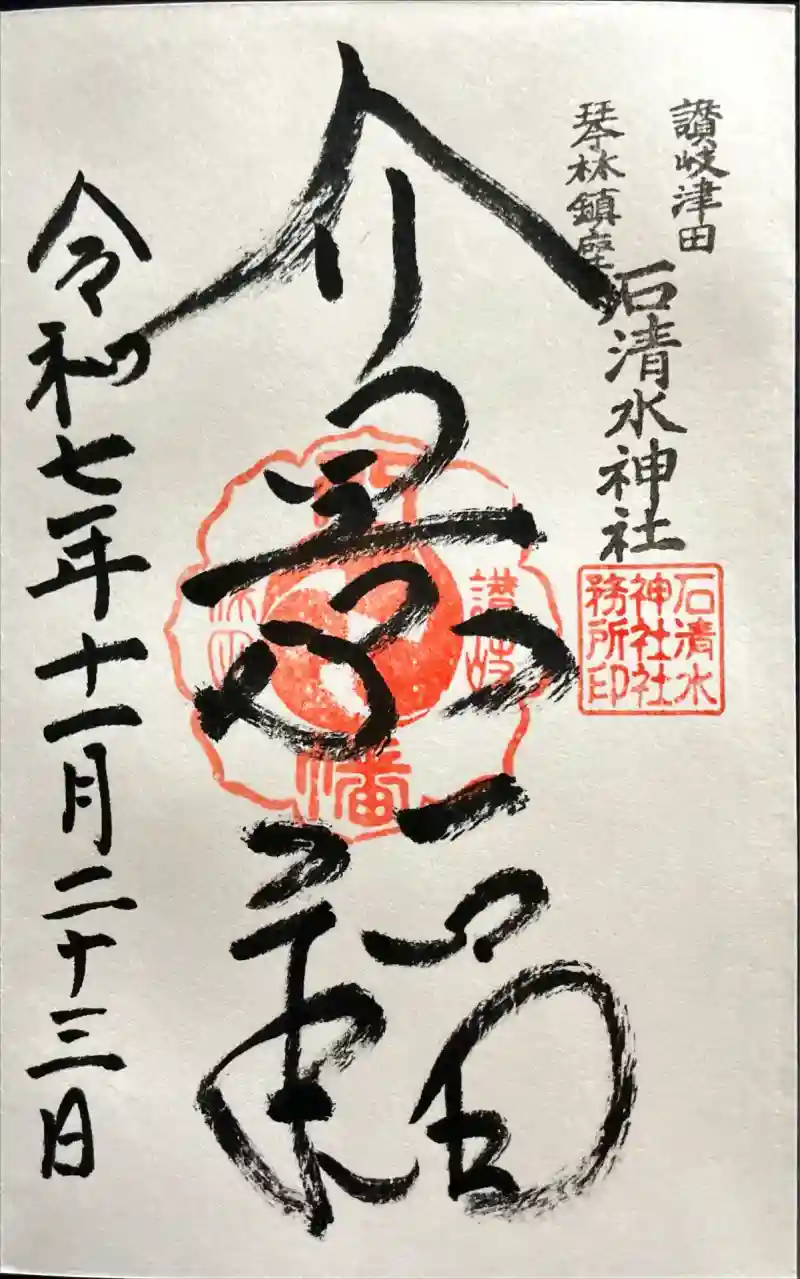 讃岐津田
琴林鎮座
石清水神社
石清水
神社社
務所印
介景福
讃岐
幡
令和七年十一月二十三日